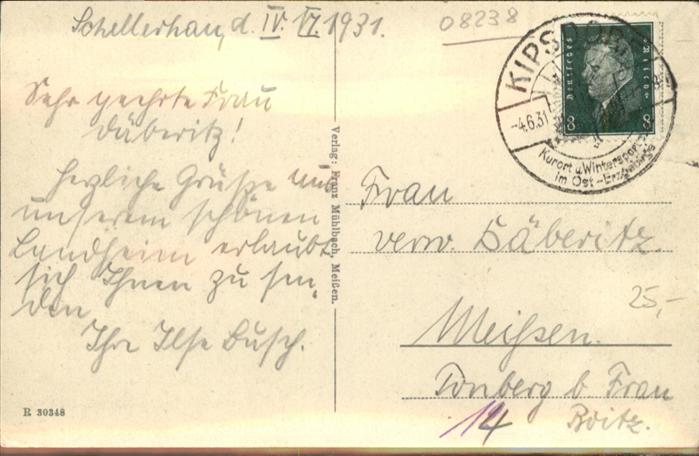 Schellerhau, d. IV. VI. 1931.
08238
Sehr geehrte Frau
Däberitz!
Herzliche Grüße aus
unserem schönen
Landheim erlaubt
sich Ihnen zu sen-
den
Ihre Ilse Busch.
R 30348
Verlag: Franz Mühlbach, Meißen.
KIPSDORF
-4.6.31
Kurort u. Wintersport-
im Ost-Erzgebirge
Deutsches Reich
8 8
Frau
verw. Däberitz.
25,-
Meißen.
Tonberg b Frau
14 Boitz.